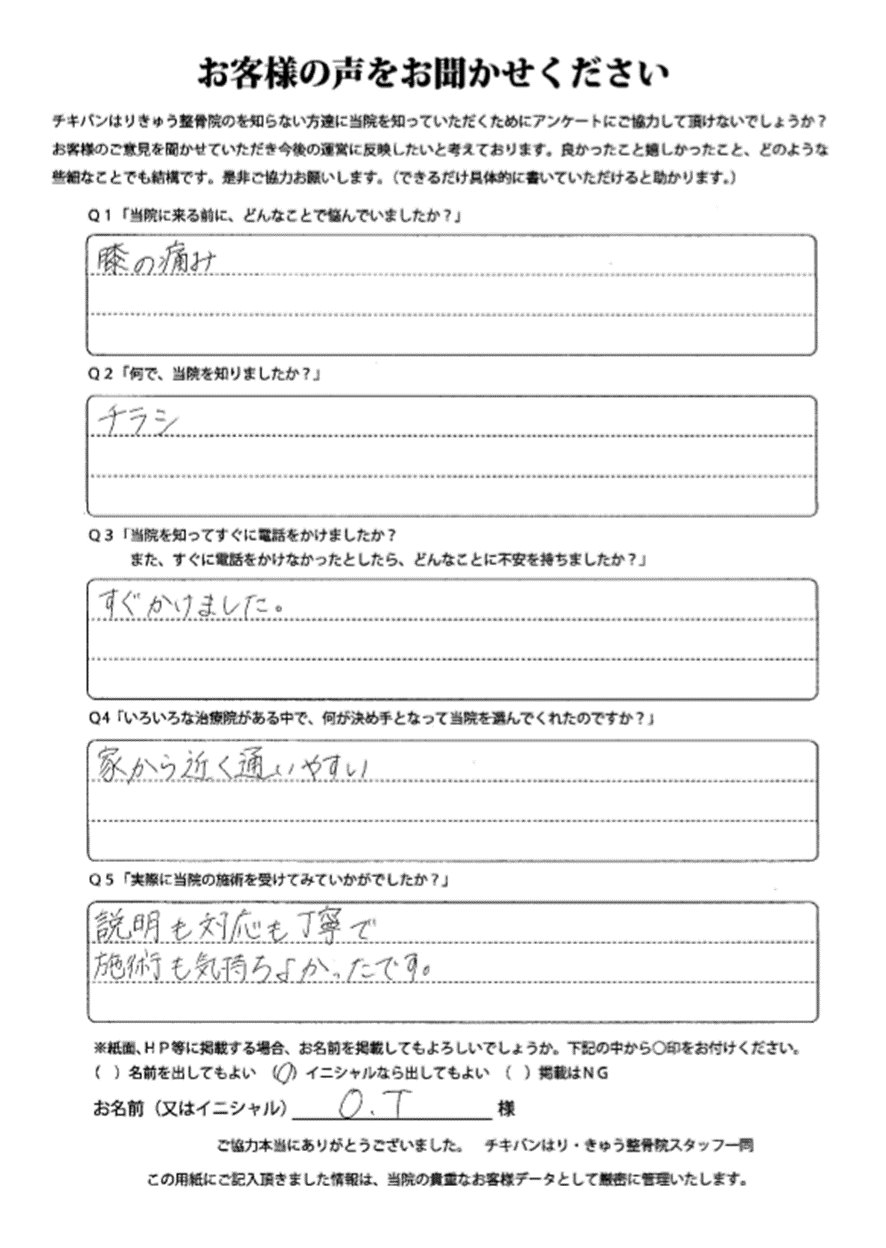 お客様の声をお聞かせください
チキバンはりきゅう整骨院のを知らない方達に当院を知っていただくためにアンケートにご協力して頂けないでしょうか？
お客様のご意見を聞かせていただき今後の運営に反映したいと考えております。良かったこと嬉しかったこと、どのような
些細なことでも結構です。是非ご協力お願いします。（できるだけ具体的に書いていただけると助かります。）
Ｑ１「当院に来る前に、どんなことで悩んでいましたか？」
膝の痛み
Ｑ２「何で、当院を知りましたか？」
チラシ
Ｑ３「当院を知ってすぐに電話をかけましたか？
また、すぐに電話をかけなかったとしたら、どんなことに不安を持ちましたか？」
すぐかけました。
Q4「いろいろな治療院がある中で、何が決め手となって当院を選んでくれたのですか？」
家から近く通いやすい
Ｑ５「実際に当院の施術を受けてみていかがでしたか？」
説明も対応も丁寧で
施術も気持ちよかったです。
※紙面、ＨＰ等に掲載する場合、お名前を掲載してもよろしいでしょうか。下記の中から○印をお付けください。
（　）名前を出してもよい （○）イニシャルなら出してもよい （　）掲載はＮＧ
お名前（又はイニシャル） O.T 様
ご協力本当にありがとうございました。 チキバンはり・きゅう整骨院スタッフ一同
この用紙にご記入頂きました情報は、当院の貴重なお客様データとして厳密に管理いたします。